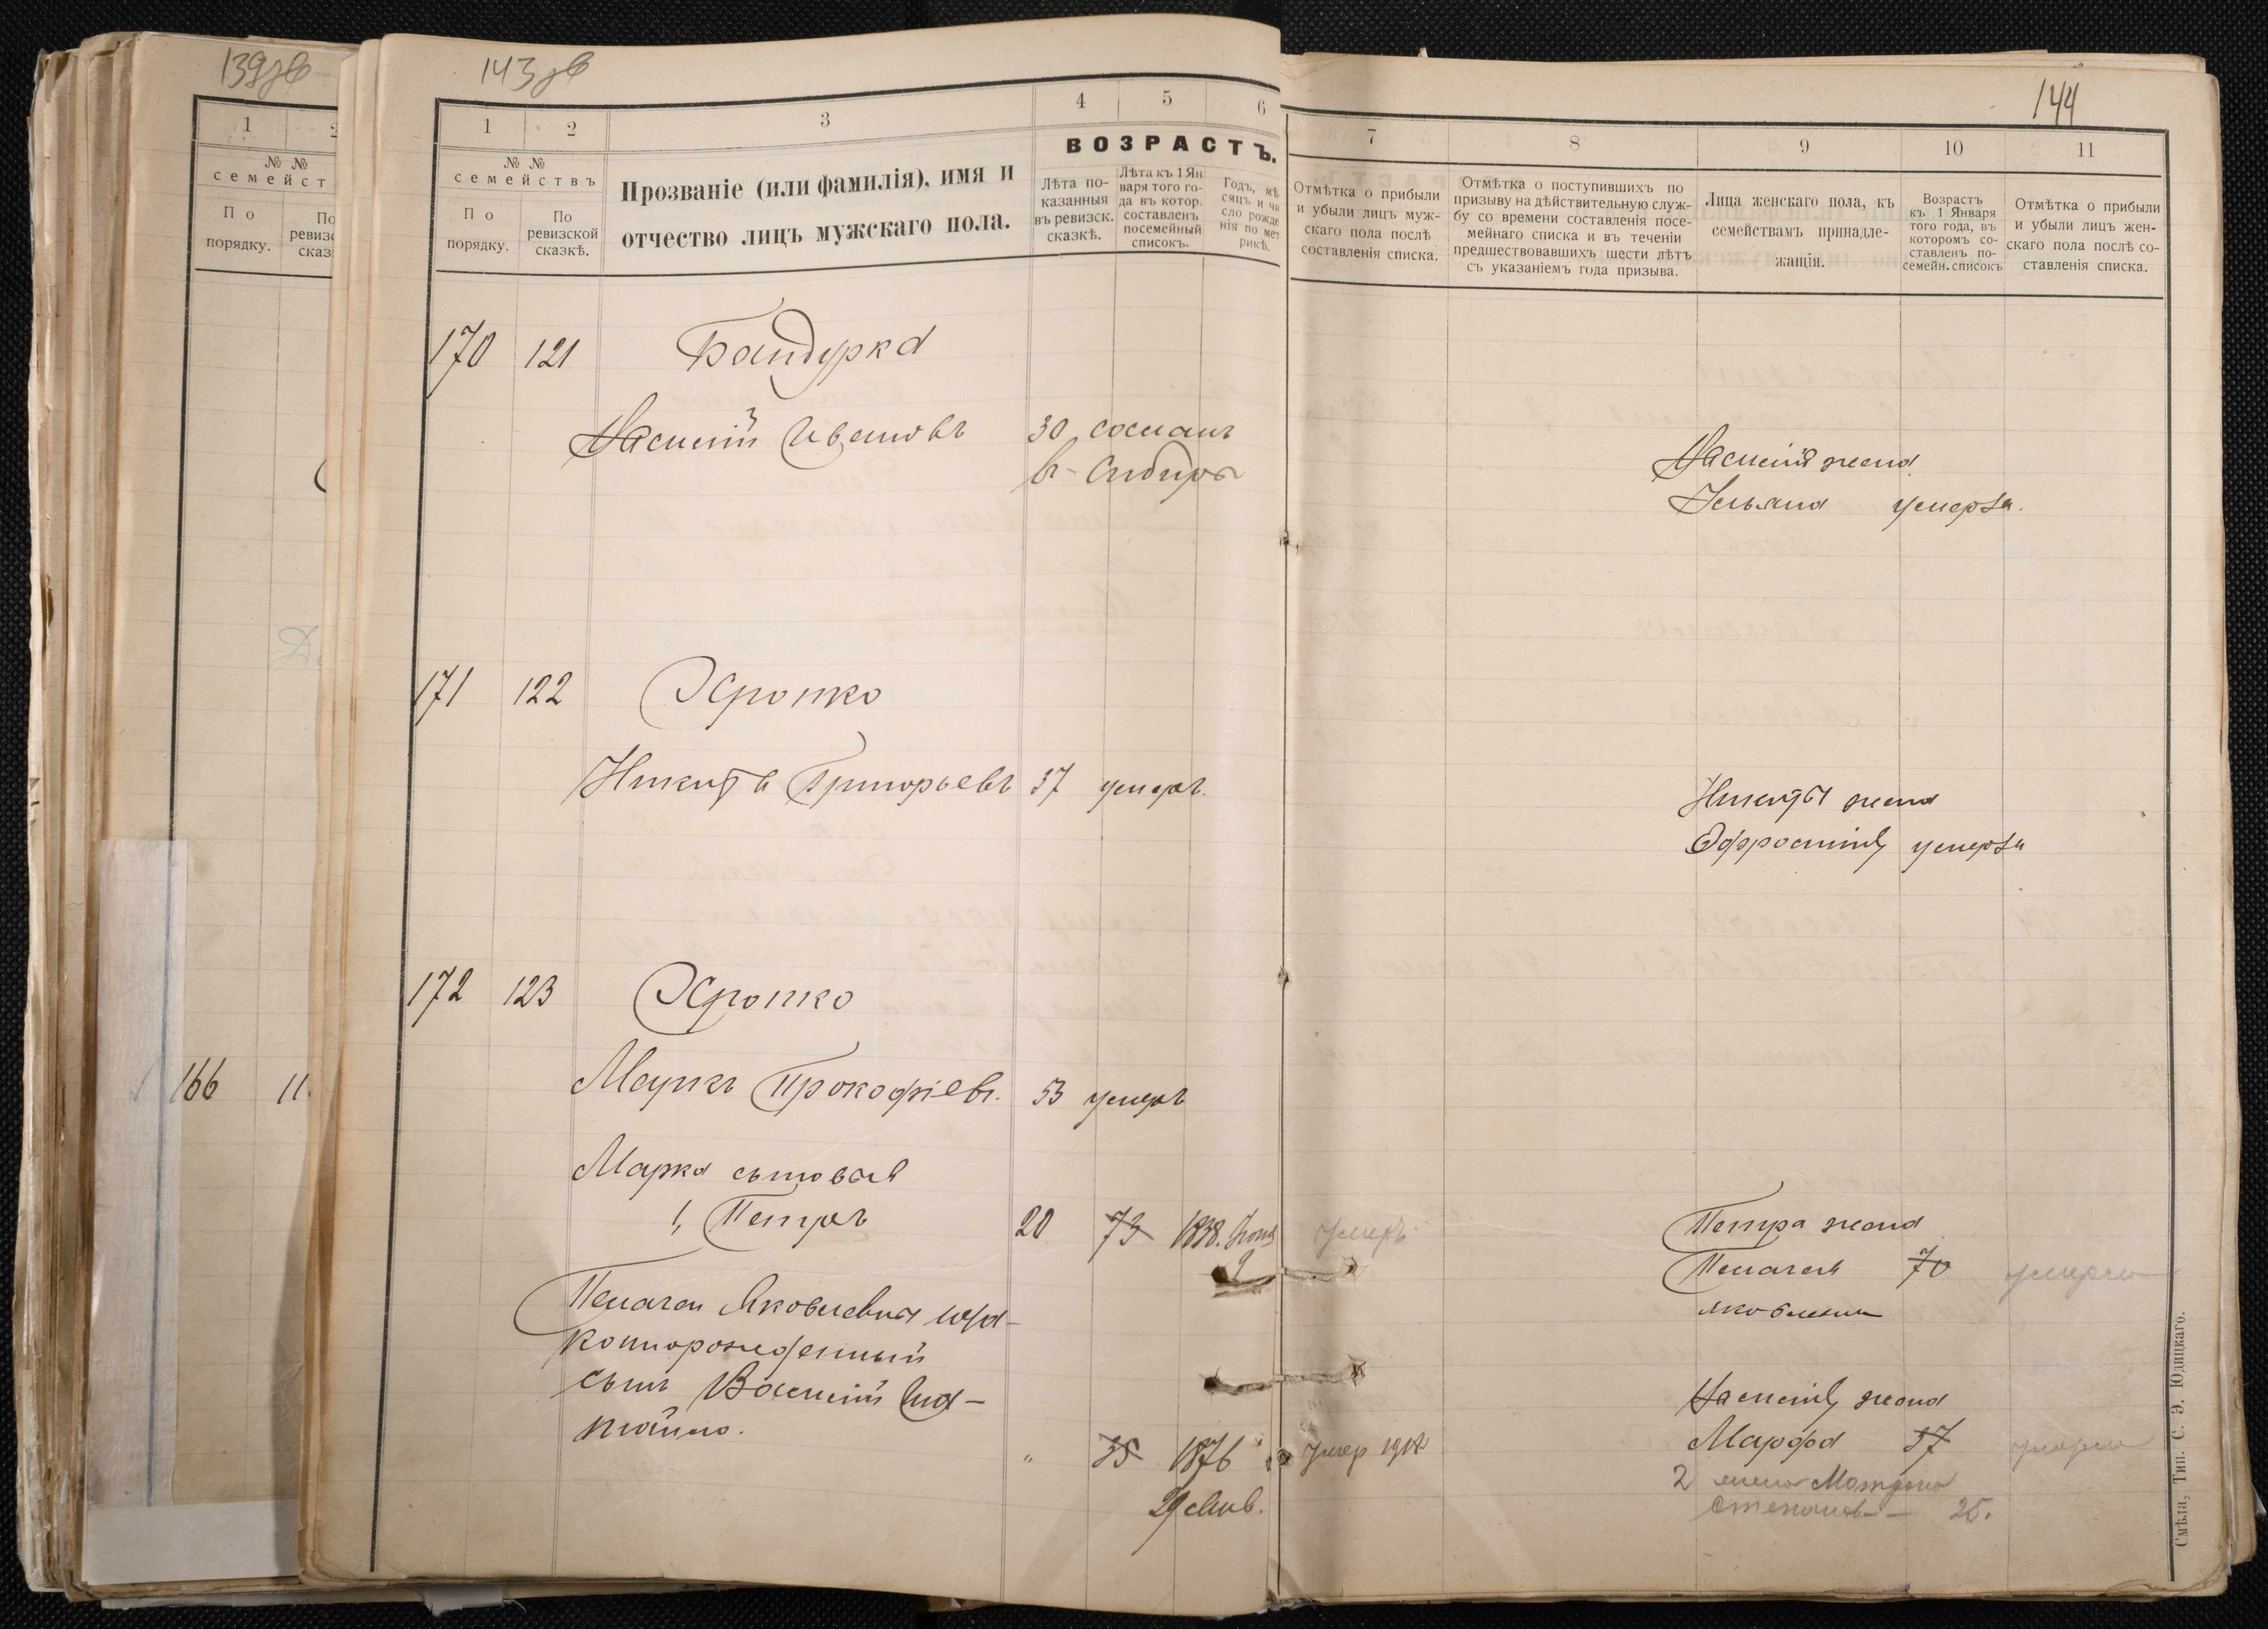 139зв
1
№ №
семейст
По
порядку.
По
166
143зв
1 2 3 4 5 6
№ №
семействъ
По порядку.
По ревизской сказкѣ.
Прозваніе (или фамилія), имя и
отчество лицъ мужскаго пола.
ВОЗРАСТЪ.
Лѣта по-
казанныя
въ ревизск.
сказкѣ.
Лѣта къ 1 Ян
варя того го-
да въ котор.
составленъ
посемейный
списокъ.
Годъ, мѣ
сяцъ и чи
сло рожде
нія по мет
рикѣ.
170 121 Бандурка
Василій Ивановъ 30 сосланъ
въ Сибирь
171 122 Хропко
Никита Григорьевъ 37 умеръ.
172 123 Хропко
Маркъ Прокофіевъ. 53 умеръ
Марка сыновья
1, Петръ 20 73 1838. Іюня
9
Пелагеи Яковлевна
коннорожденный
сынъ Василій
" 35 1876
29 Янв.
144
7 8 9 10 11
Отмѣтка о прибыли
и убыли лицъ муж-
скаго пола послѣ
составленія списка.
Отмѣтка о поступившихъ по
призыву на дѣйствительную служ-
бу со времени составленія посе-
мейнаго списка и въ теченіи
предшествовавшихъ шести лѣтъ
съ указаніемъ года призыва.
Лица женскаго пола, къ
семействамъ принадле-
жащія.
Возрастъ
къ 1 Января
того года, въ
которомъ со-
ставленъ по-
семейн. списокъ
Отмѣтка о прибыли
и убыли лицъ жен-
скаго пола послѣ со-
ставленія списка.
Василія жена
Ульяна умерла.
Никиты жена
Ефросинія умерла
умеръ
Петра жена
Пелагея 70 умерла
Яковлевна
Василія жена
умер 1918 Марфа 37 умерла
2 жена Мотрона
Степанов— 25.
Смѣла, Тип. С. Э. Юдицкаго.